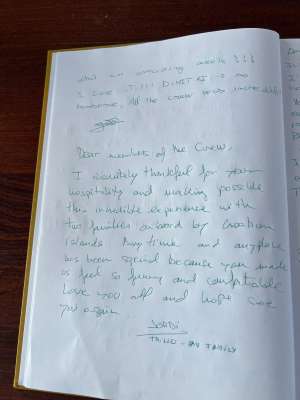 what an amazing week!!!
I love it!!! DIMITRI is so
handsome, All the crew was incredible
Dear members of the Crew,
I absolutely thankful for your
hospitality and making possible
this incredible experience with
two families onboard by Croatian
islands. Any time and anyplace
has been special because you made
us feel so funny and comfortable
Love you all and hope see
you again
JORDI